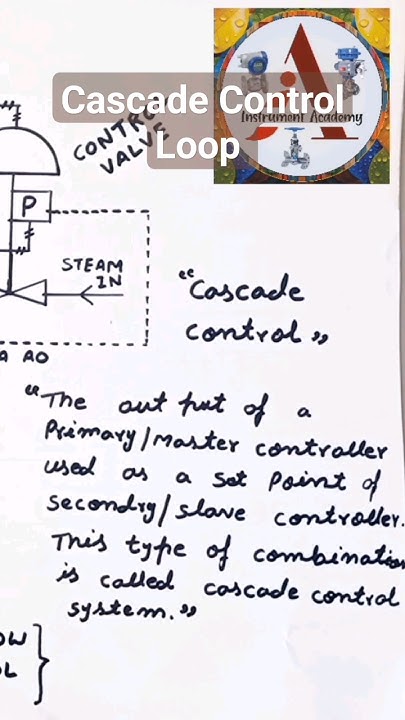 Cascade Control
Loop
Instrument Academy
CONTROL
VALVE
P
STEAM
IN
A AO
"Cascade
control"
"The out put of a
Primary/Master controller
used as a set Point of
Secondry/Slave controller.
This type of combination
is called cascade control
system."
OW
OL